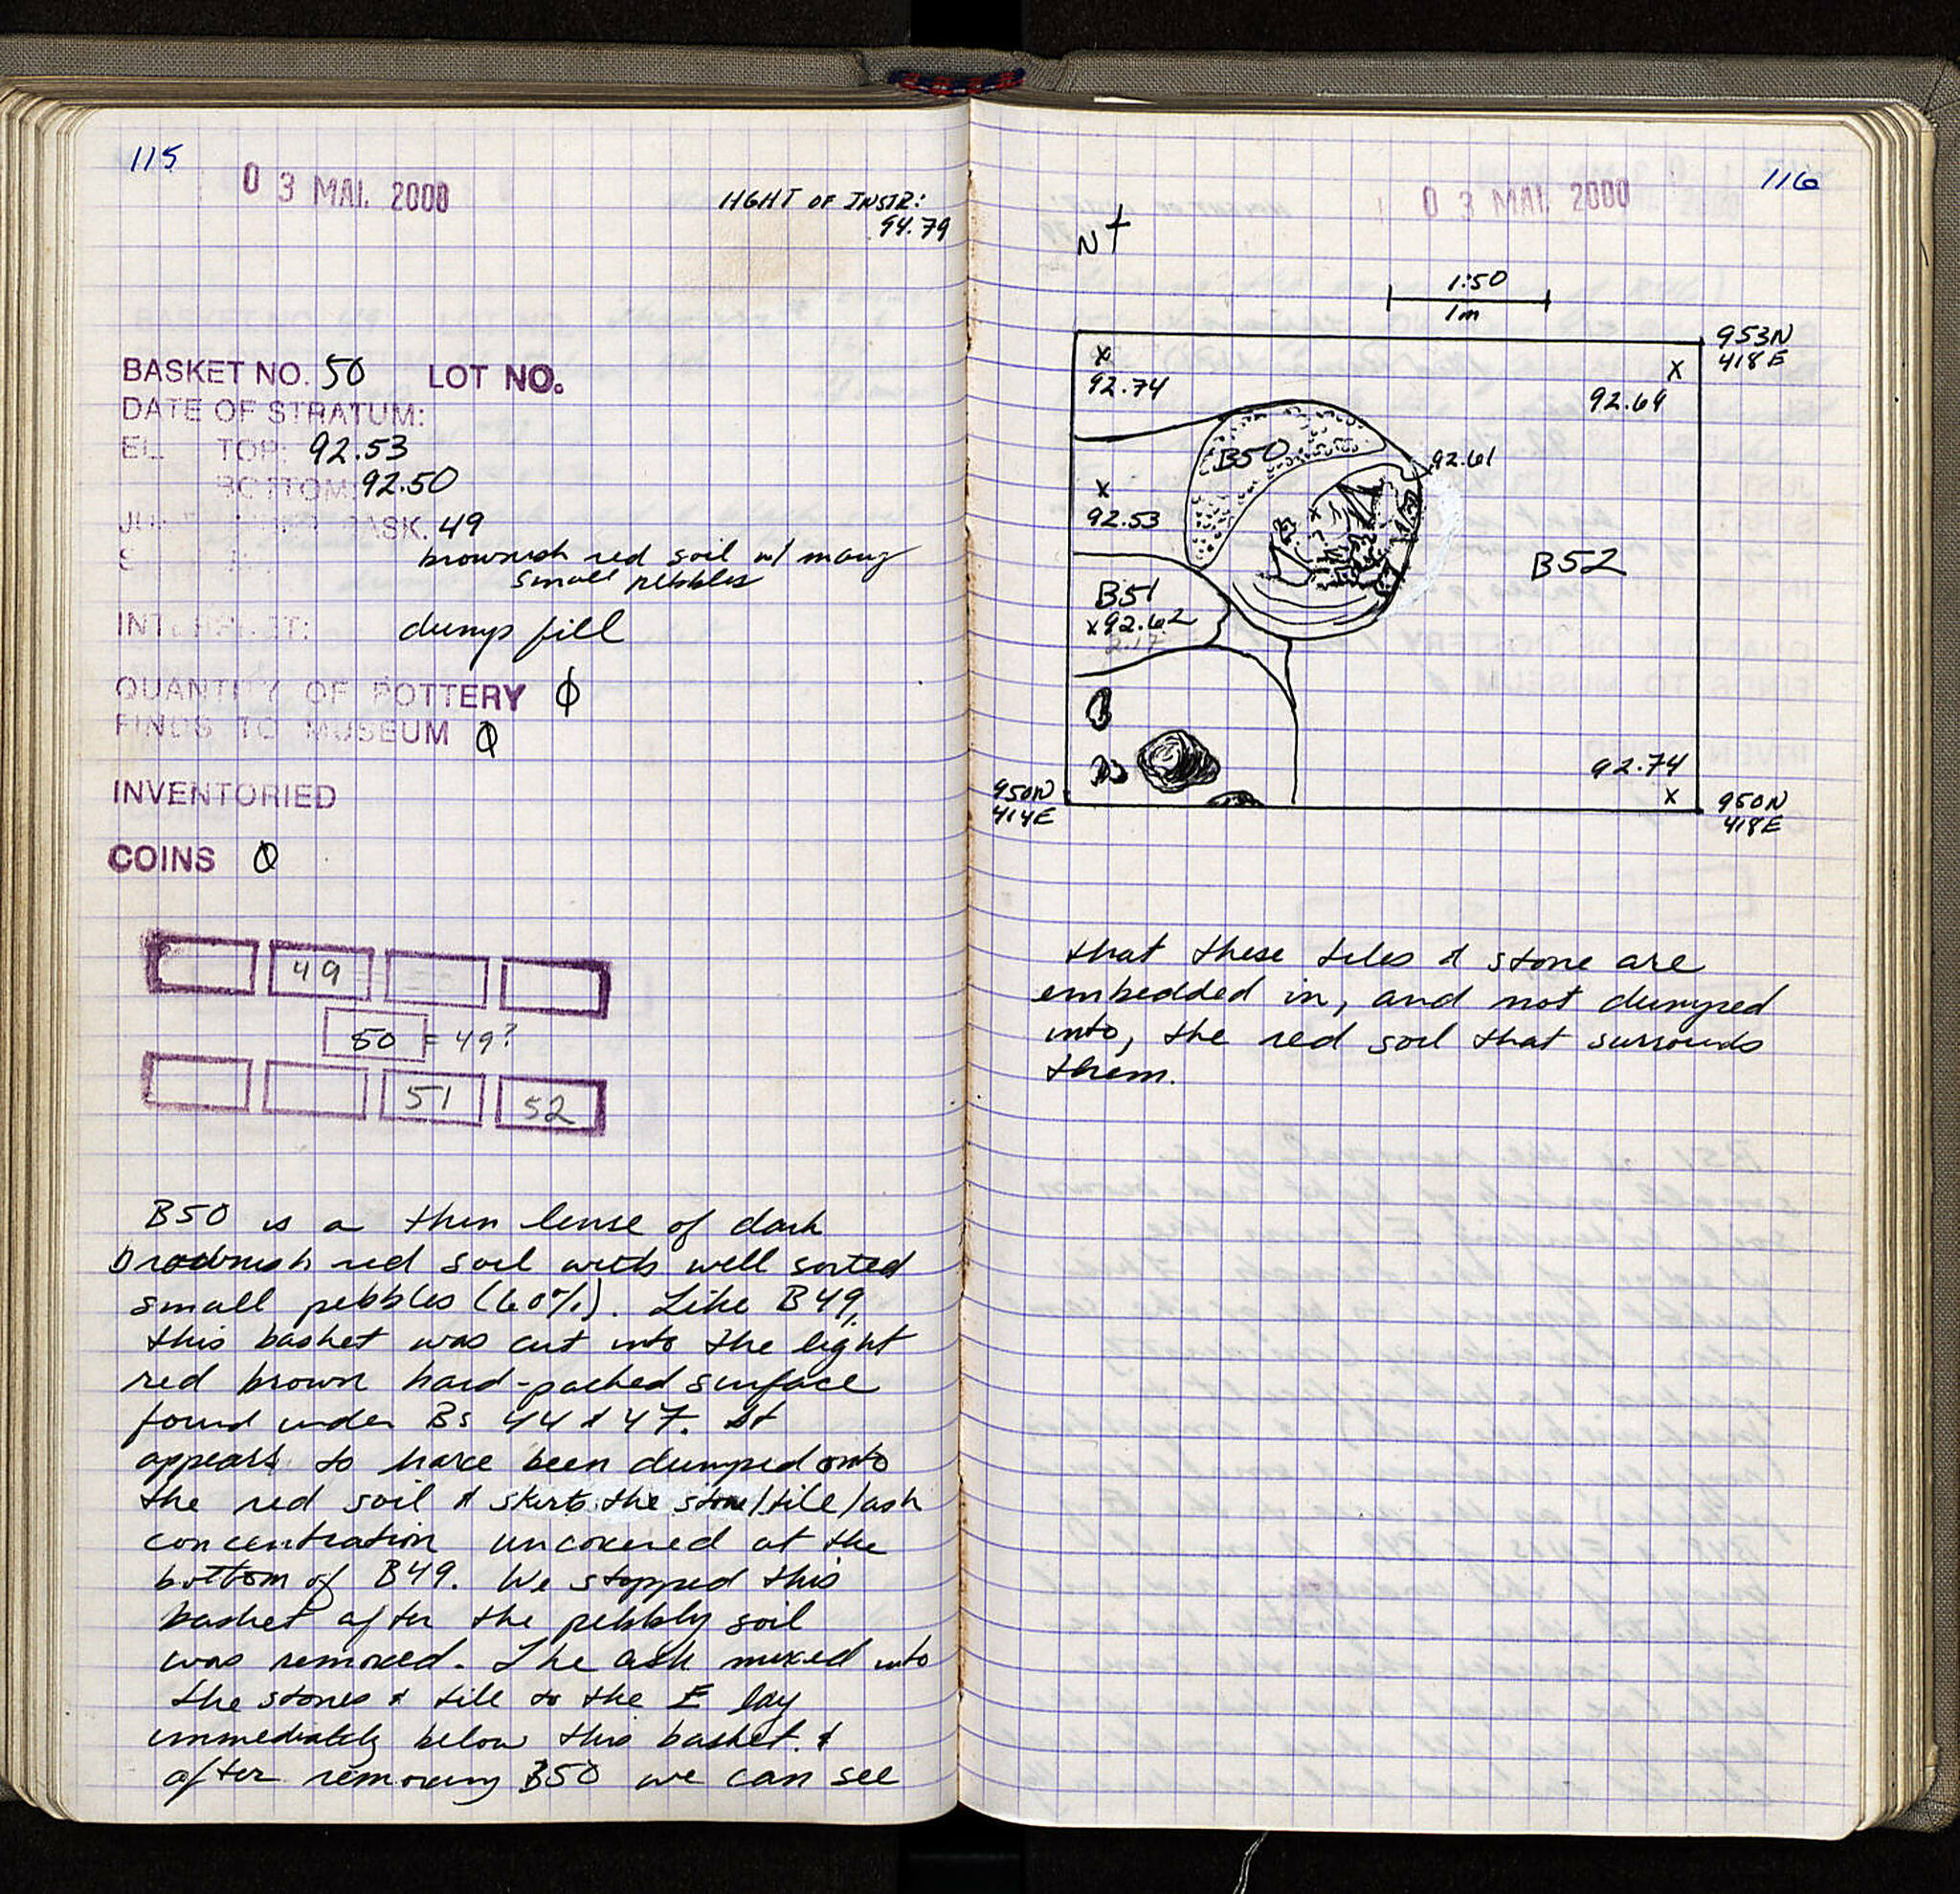 115
03 MAI. 2000
HGHT OF INSTR:
94.79
BASKET NO. 50 LOT NO.
DATE OF STRATUM:
EL. TOP: 92.53
BOTTOM: 92.50
BASK. 49
brownish red soil w/ many
small pebbles
INTERPRET: dump fill
QUANTITY OF POTTERY Ø
FINDS TO MUSEUM Ø
INVENTORIED
COINS Ø
49
50 = 49?
51 52
B50 is a thin lense of dark
brownish red soil with well sorted
small pebbles (60%). Like B49,
this basket was cut into the light
red brown hard-packed surface
found under Bs 44 & 47. It
appears to have been dumped onto
the red soil & skirts the stone/tile/ash
concentration uncovered at the
bottom of B49. We stopped this
basket after the pebbly soil
was removed. The ash mixed into
the stones & tile to the E lay
immediately below this basket. &
after removing B50 we can see
116
03 MAI. 2000
N
1:50
1m
953N
418E
x
92.74
x
92.69
B50
92.61
x
92.53
B52
B51
x92.62
92.74
x
950N
414E
950N
418E
that these tiles & stone are
embedded in, and not dumped
into, the red soil that surrounds
them.